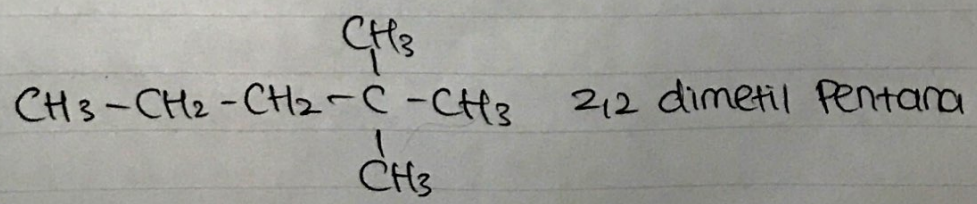 CH3
CH3-CH2-CH2-C-CH3 2,2 dimetil Pentana
CH3